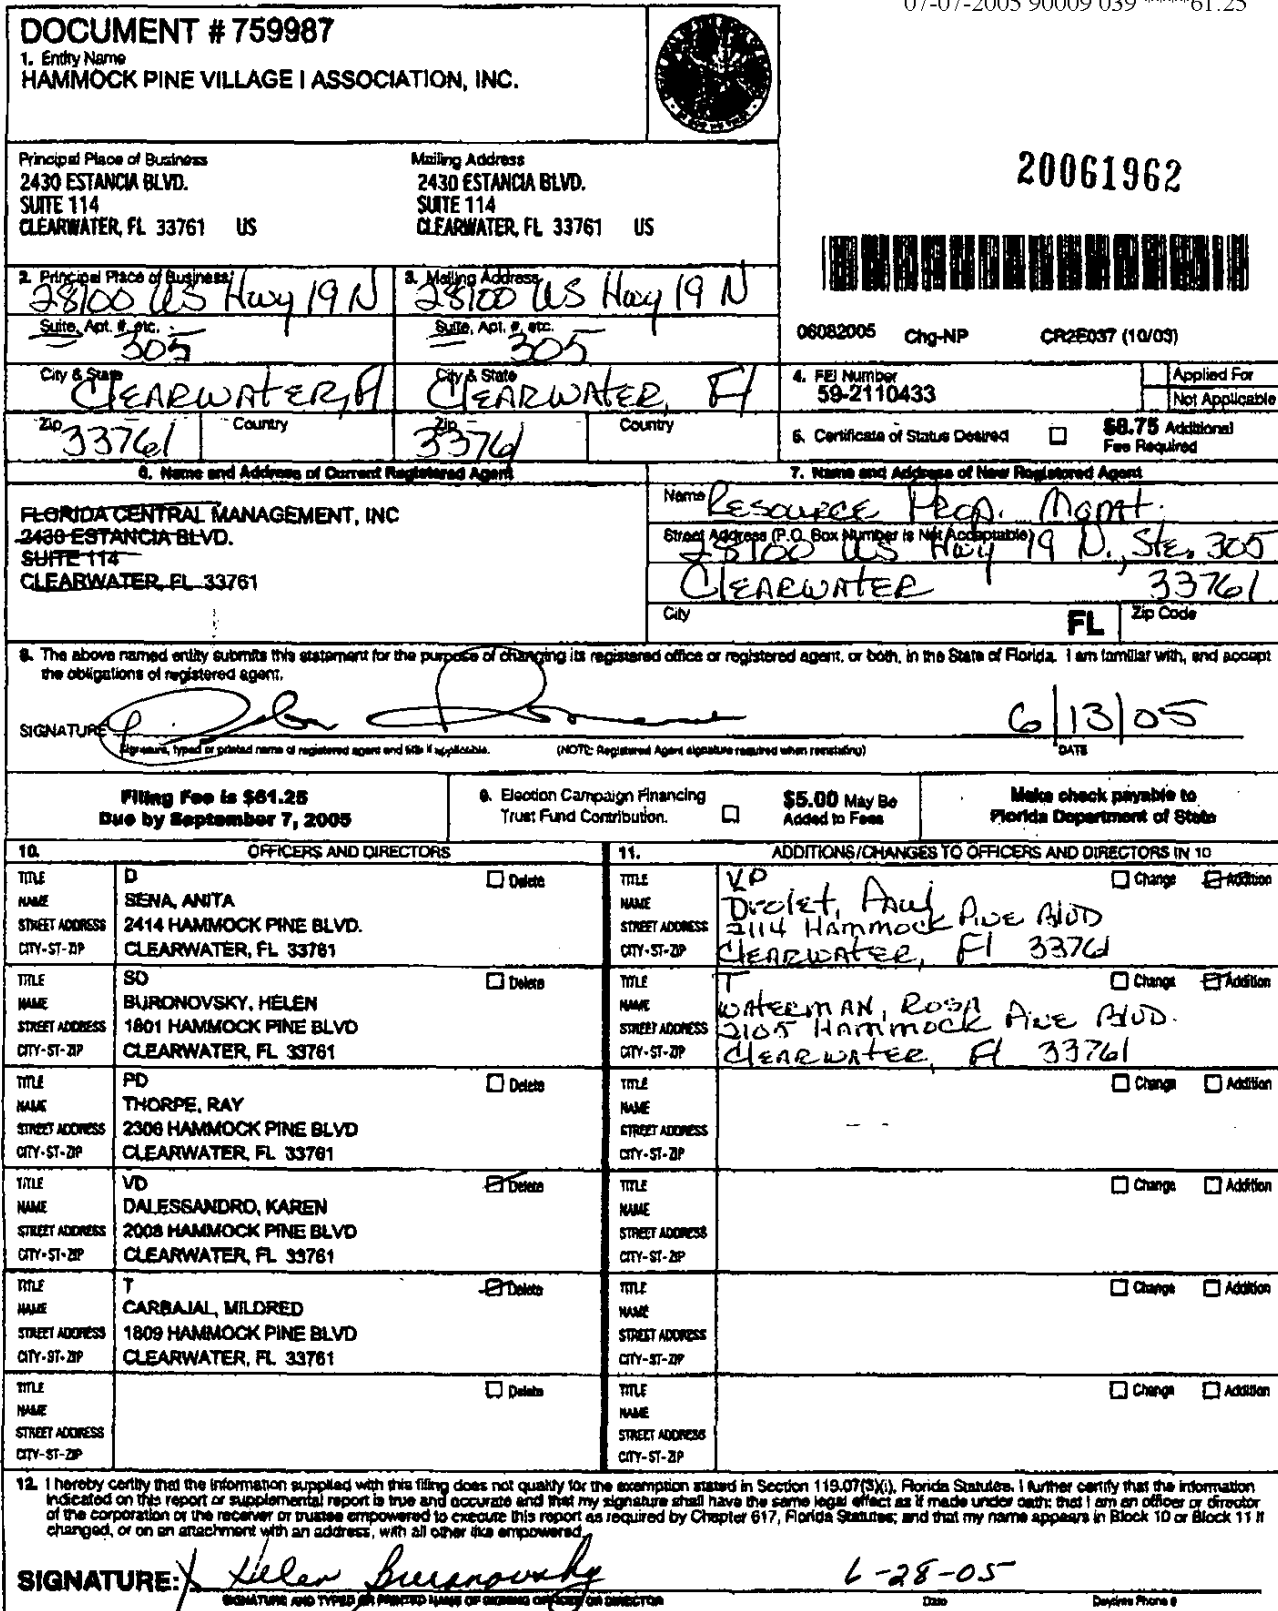 07-07-2005 90009 039 ****61.25
DOCUMENT # 759987
1. Entity Name
HAMMOCK PINE VILLAGE I ASSOCIATION, INC.
Principal Place of Business
2430 ESTANCIA BLVD.
SUITE 114
CLEARWATER, FL 33761 US
Mailing Address
2430 ESTANCIA BLVD.
SUITE 114
CLEARWATER, FL 33761 US
20061962
2. Principal Place of Business
28100 US Hwy 19 N
3. Mailing Address
28100 US Hwy 19 N
Suite, Apt. #, etc.
305
Suite, Apt. #, etc.
305
06082005 Chg-NP CR2E037 (10/03)
City & State
CLEARWATER, Fl
City & State
CLEARWATER, Fl
4. FEI Number
59-2110433
Applied For
Not Applicable
Zip
33761
Country
Zip
33761
Country
5. Certificate of Status Desired
$8.75 Additional
Fee Required
6. Name and Address of Current Registered Agent
FLORIDA CENTRAL MANAGEMENT, INC
2430 ESTANCIA BLVD.
SUITE 114
CLEARWATER, FL 33761
7. Name and Address of New Registered Agent
Name
RESOURCE PROP. Mgmt.
Street Address (P.O. Box Number is Not Acceptable)
28100 US Hwy 19 N., Ste. 305
CLEARWATER 33761
City FL Zip Code
8. The above named entity submits this statement for the purpose of changing its registered office or registered agent, or both, in the State of Florida. I am familiar with, and accept
the obligations of registered agent.
SIGNATURE
6/13/05
Signature, typed or printed name of registered agent and title if applicable. (NOTE: Registered Agent signature required when reinstating) DATE
Filing Fee is $61.25
Due by September 7, 2005
9. Election Campaign Financing
Trust Fund Contribution.
$5.00 May Be
Added to Fees
Make check payable to
Florida Department of State
10. OFFICERS AND DIRECTORS
11. ADDITIONS/CHANGES TO OFFICERS AND DIRECTORS IN 10
TITLE D Delete
NAME SENA, ANITA
STREET ADDRESS 2414 HAMMOCK PINE BLVD.
CITY-ST-ZIP CLEARWATER, FL 33761
TITLE VP Change Addition
NAME Drolet, Paul
STREET ADDRESS 2114 HAMMOCK PINE BlvD
CITY-ST-ZIP CLEARWATER, Fl 33761
TITLE SD Delete
NAME BURONOVSKY, HELEN
STREET ADDRESS 1801 HAMMOCK PINE BLVD
CITY-ST-ZIP CLEARWATER, FL 33761
TITLE T Change Addition
NAME WATERMAN, ROSA
STREET ADDRESS 2105 HAMMOCK PINE BlvD.
CITY-ST-ZIP CLEARWATER, Fl 33761
TITLE PD Delete
NAME THORPE, RAY
STREET ADDRESS 2306 HAMMOCK PINE BLVD
CITY-ST-ZIP CLEARWATER, FL 33761
TITLE Change Addition
NAME
STREET ADDRESS
CITY-ST-ZIP
TITLE VD Delete
NAME DALESSANDRO, KAREN
STREET ADDRESS 2008 HAMMOCK PINE BLVD
CITY-ST-ZIP CLEARWATER, FL 33761
TITLE Change Addition
NAME
STREET ADDRESS
CITY-ST-ZIP
TITLE T Delete
NAME CARBAJAL, MILDRED
STREET ADDRESS 1809 HAMMOCK PINE BLVD
CITY-ST-ZIP CLEARWATER, FL 33761
TITLE Change Addition
NAME
STREET ADDRESS
CITY-ST-ZIP
TITLE Delete
NAME
STREET ADDRESS
CITY-ST-ZIP
TITLE Change Addition
NAME
STREET ADDRESS
CITY-ST-ZIP
12. I hereby certify that the information supplied with this filing does not qualify for the exemption stated in Section 119.07(3)(i), Florida Statutes. I further certify that the information
indicated on this report or supplemental report is true and accurate and that my signature shall have the same legal effect as if made under oath; that I am an officer or director
of the corporation or the receiver or trustee empowered to execute this report as required by Chapter 617, Florida Statutes; and that my name appears in Block 10 or Block 11 if
changed, or on an attachment with an address, with all other like empowered.
SIGNATURE: X Helen Buronovsky 6-28-05
SIGNATURE AND TYPED OR PRINTED NAME OF SIGNING OFFICER OR DIRECTOR Date Daytime Phone #